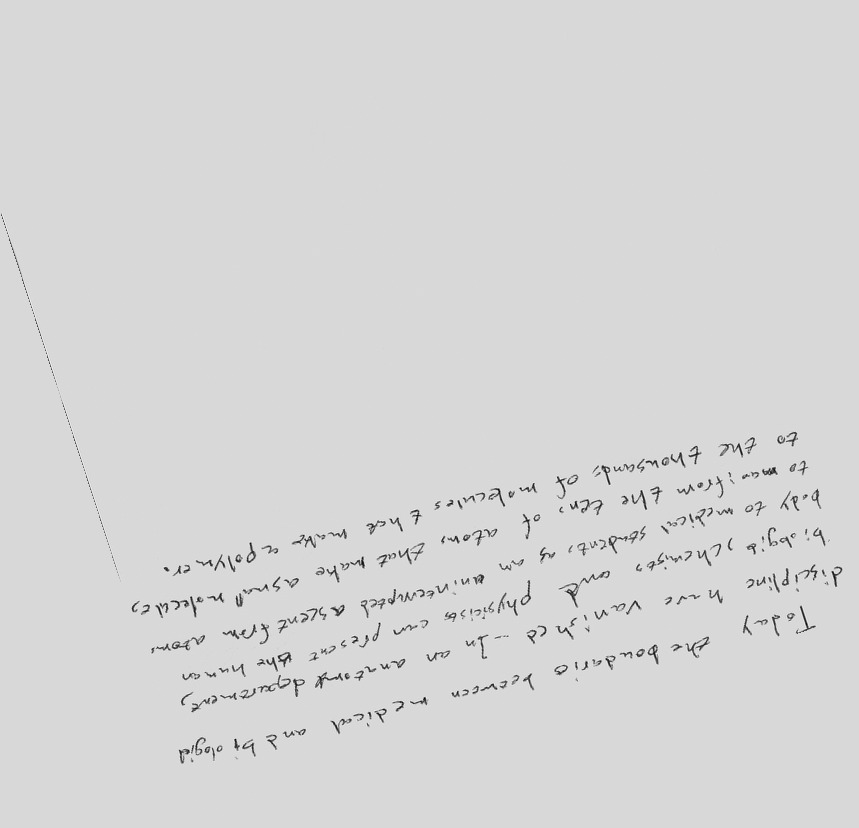 Today the boundaries between medical and biological
discipline have vanished - In an anatomy department,
biologists, chemists and physicists can present the human
body to medical students as an uninterrupted ascent from atoms
to man: from the tens of atoms that make a small molecule,
to the thousands of molecules that make a polymer.